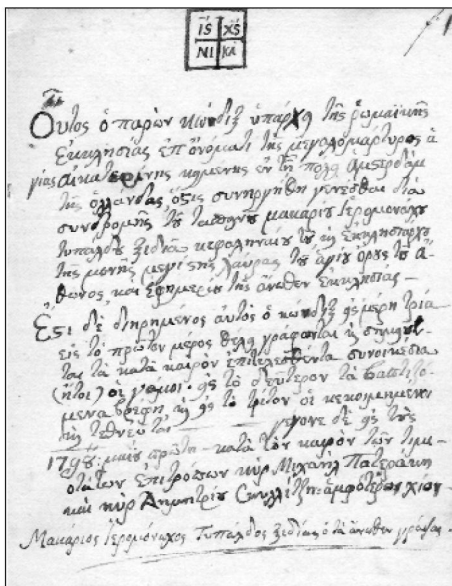 ΙΣ ΧΣ
ΝΙ ΚΑ
Οὗτος ὁ παρὼν κώνδιξ ὑπάρχη τῆς ῥωμαϊκῆς
Ἐκκλησίας ἐπ ὀνόματι τῆς μεγαλομάρτυρος ἁ
γίας αἰκατερίνης κημένης ἐν τῇ πόλη ἀμστερδὰμ
τῆς ὁλλάνδας ὅςις συνηργήθη γενέσθαι διὰ
συνδρομῆς τοῦ μακαρίου ἱερομονάχου
τυπάλδου ξιδιᾶ κεφαληναίου τοῦ ἐκκλησιάρχου
τῆς μονῆς μεγίςης λαύρας τοῦ ἁγίου ὄρους τοῦ ἄ
θωνος, καὶ ἐφημερίου τῆς ἄνωθεν ἐκκλησίας –
Ἔςι δὲ διηρημένος αὐτὸς ὁ κώνδιξ εἰς μέρη τρία
εἰς τὸ πρῶτον μέρος θέλη γράφονται
τὰ κατὰ καιρὸν ἐπιτελεσθέντα συνοικέσια
(ἤτοι) οἱ γάμοι. εἰς τὸ δεύτερον τὰ βαπτιζό
μενα βρέφη καὶ εἰς τὸ τρίτον οἱ κεκοιμημένοι
γέγονε δὲ εἰς τοὺς
κατὰ τὸν καιρὸν τῶν τιμι
οτάτων ἐπιτρόπων κὺρ Μιχαὴλ Πατεράκη
καὶ κὺρ Δημητρίου ἀμφότεροι χίοι–
Μακάριος ἱερομόναχος Τυπάλδος ξιδιᾶς ὁ τὰ ἄνωθεν γράψας.